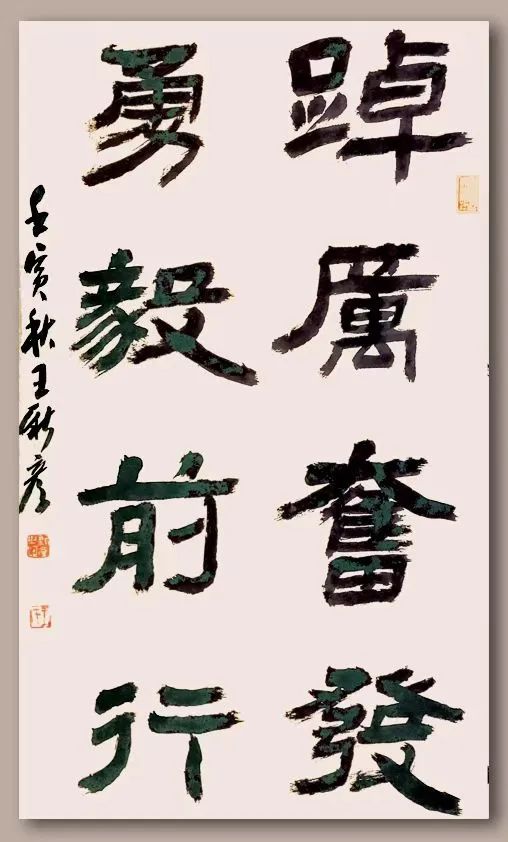 踔厲奮發
勇毅前行
壬寅秋王新彦